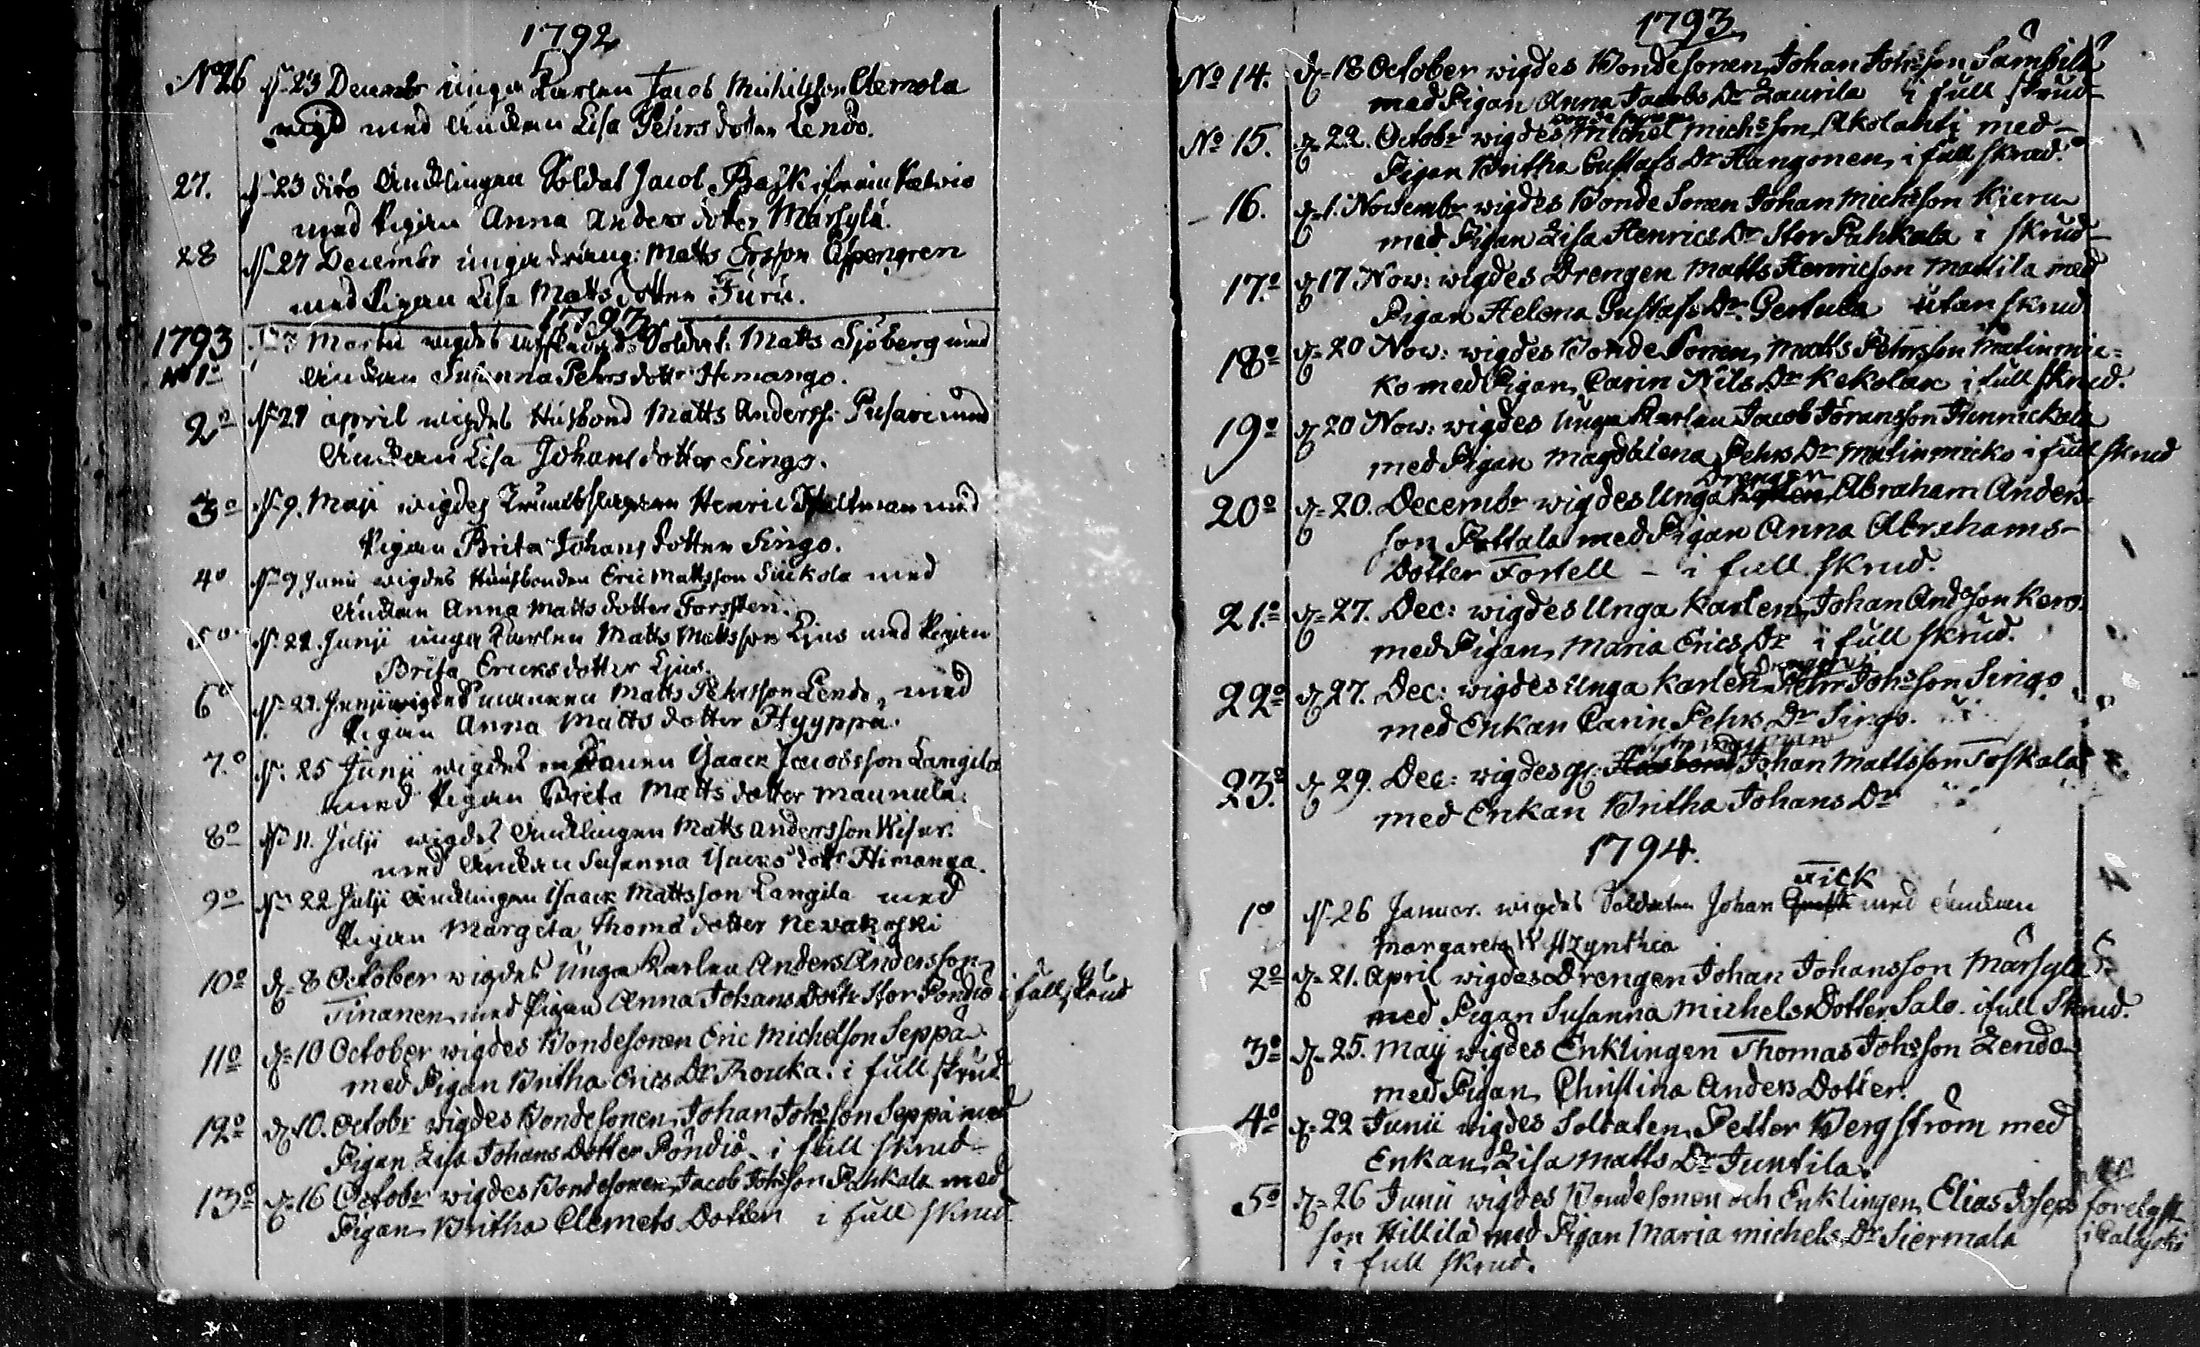 1792
No 26 d. 23 Decembr unga Karlen Jacob Michilsson Clemola
wigd med Änckan Lisa Pehrs dotter Lendo.
27. d. 23 dito Äncklingen Soldat Jacob Rask ifrån
med Pigan Anna Anders dotter Märsylä.
28 d. 27 Decembr unga dräng: Matts Ersson Aspengren
med Pigan Lisa Matts dotter Furu.
1793
1793 Martii wigdes Soldat. Matts Sjöberg med
No 1o Änckan Susanna Pehrs dottr Himango.
2o d. 21 april wigdes Husbond Matts Anderss: Pusari med
Änckan Lisa Johans dotter Singo.
3o d. 9. Maji wigdes Trumbslagaren Henric med
Pigan Brita Johans dotter Singo.
4o d. 9 Junii wigdes Huusbonden Eric Mattsson Siickola med
Änckan Anna Matts dotter Forssten.
5o d. 22. Junji unga Karlen Matts Mattsson Ljus med Pigan
Brita Ericks dotter Ljus.
6o d. 22. Junji wigdes Matts Pehrsson Lendo, med
Pigan Anna Matts dotter Hyyppä.
7.o d. 25 Junii wigdes Isaack Jacobsson Langila
med Pigan Breta Matts dotter maunula.
8o d. 11. Julji wigdes Äncklingen Matts andersson Wisur.
med Änckan Susanna Isacks dottr Himanga.
9o d. 22 Julji Äncklingen Isaack Mattsson Langila med
Pigan Margeta Thomas dotter Nevakoski
10o d. 8 October wigdes Unga Karlen Anders Andersson
Tinanen med Pigan Anna Johans Dottr Stor Pondio i full skrud
11o d. 10 October wigdes Bondesonen Eric Michelson Seppä
med Pigan Britha Erics Dr Rouka. i full skrud
12o d. 10. Octobr wigdes Bondesonen Johan Johsson Seppä med
Pigan Lisa Johans Dotter Pöndiö. i full skrud
13o d. 16 Octobr wigdes Bondesonen Jacob Johsson Pahkala med
Pigan Britha Clemets Dotter i full skrud
1793
No 14. d. 18 October wigdes Bondesonen Johan Johsson Sämbilä
med Pigan Anna Jacobs Dr Laurila i full skrud
Bonde sonen
No 15. d. 22. Octobr wigdes Michel Michsson Akolahti med
Pigan Britha Gustafs Dr Kangonen, i full skrud.
16. d. 1. Novembr wigdes Bonde Sonen Johan Michsson Kieru
med Pigan Lisa Henrics Dr Stor Pahkala i skrud
17.o d. 17 Now: wigdes Drengen Matts Henricson Mattila med
Pigan Helena Gustafs Dr. Gertula utan skrud
18o d. 20 Now: wigdes Bonde Sonen, Matts Pehrsson Malinmic-
ko med Pigan, Carin Nils Dr Kekolax i full skrud.
19o d. 20 Now: wigdes Unga Karlen Jacob Joransson Hinnickala
med Pigan Magdalena Pehrs Dr Malinmicko i full skrud
Drengen
20o d. 20. Decembr wigdes Unga Abraham Anders-
son Pettala med Pigan Anna Abrahams-
Dotter Fortell - i full skrud.
21.o d. 27. Dec: wigdes Unga Karlen, Johan Andsson Kero
med Pigan, Maria Erics Dr i full skrud.
22o d. 27. Dec: wigdes Unga Karlen Pehr Johsson Singo
med Enkan Carin Pehrs Dr Singo.
23.o d. 29. Dec: wigdes gl: Johan Mattsson Toskala
med Enkan Britha Johans Dr
1794.
Fick
1o d. 26 Januar. wigdes Soldaten Johan med Änckan
Margareta
2o d. 21. April wigdes Drengen Johan Johansson Märsylä
med Pigan Susanna Michels Dotter Salo. i full Skrud.
3o d. 25. Maij wigdes Enklingen Thomas Johsson Lendo
med Pigan, Christina Anders Dotter.
4o d. 22 Junii wigdes Soltaten, Petter Bergström med
Enkan, Lisa Matts Dr Juntila.
5o d. 26 Junii wigdes Bondesonen och Enklingen, Elias Joseps
son Hillilä med Pigan Maria michels Dr Siermala
i full skrud.
forelyst
i Calajoki